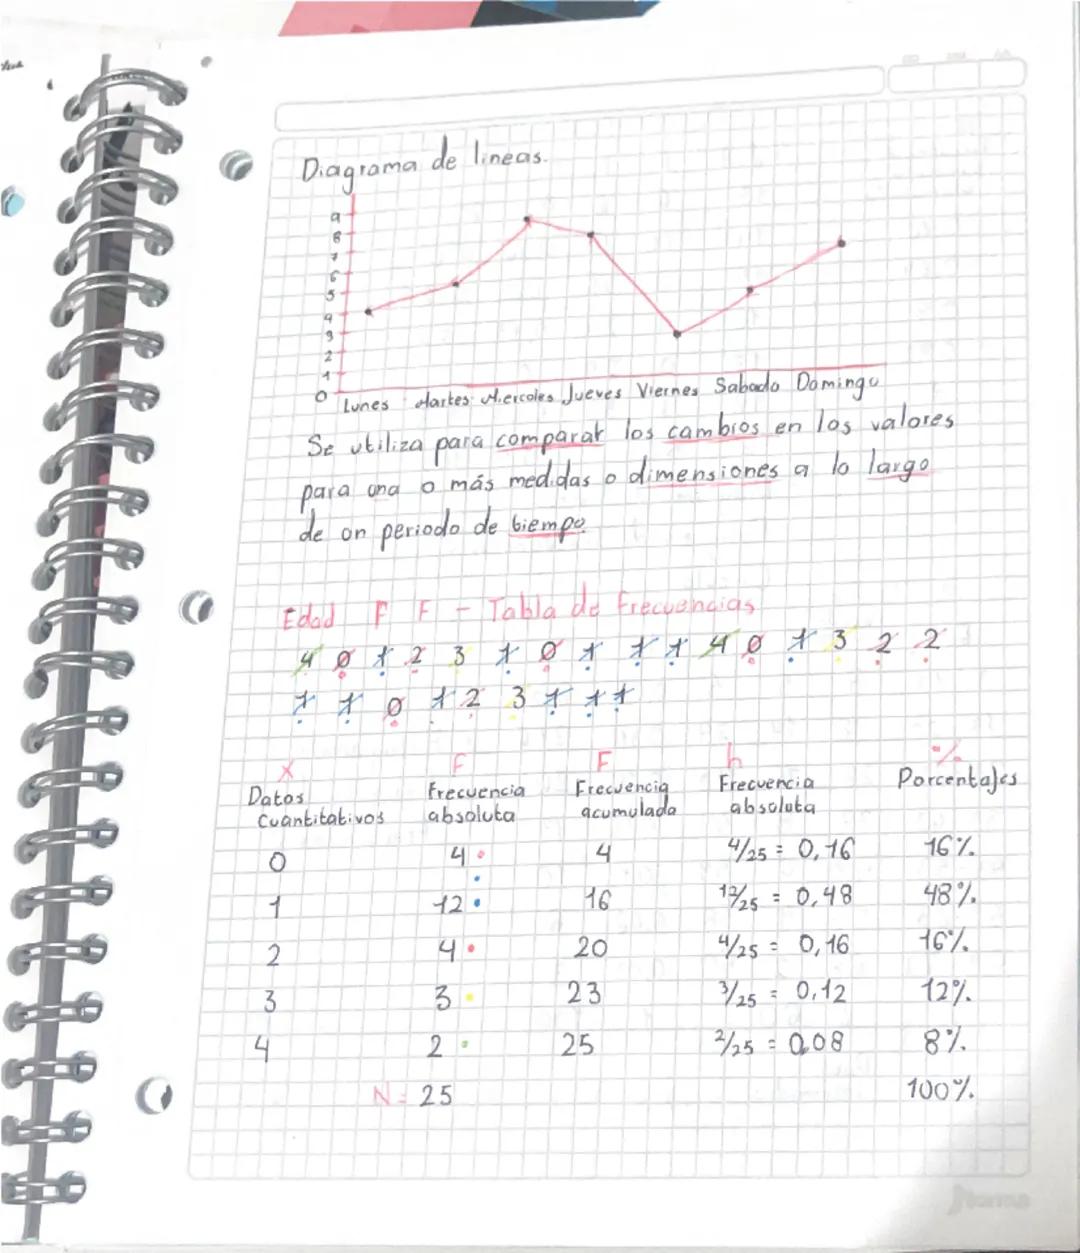 Diagrama de lineas.
9
8
7
6
5
4
3
2
1
0
Lunes Martes Miercoles Jueves Viernes Sabado Domingo
Se utiliza para comparar los cambios en los valores
para una o más medidas o dimensiones a lo largo
de un periodo de tiempo.
Edad F F - Tabla de Frecuencias
4 0 1 2 3 1 0 1 1 1 4 0 1 3 2 2
1 1 0 1 2 3 1 1 1
x f F h %
Datos Frecuencia Frecuencia Frecuencia Porcentajes
Cuantitativos absoluta acumulada absoluta
0 4 4 4/25 = 0,16 16%
1 12 16 12/25 = 0,48 48%
2 4 20 4/25 = 0,16 16%
3 3 23 3/25 = 0,12 12%
4 2 25 2/25 = 0,08 8%
N = 25 100%
Norma